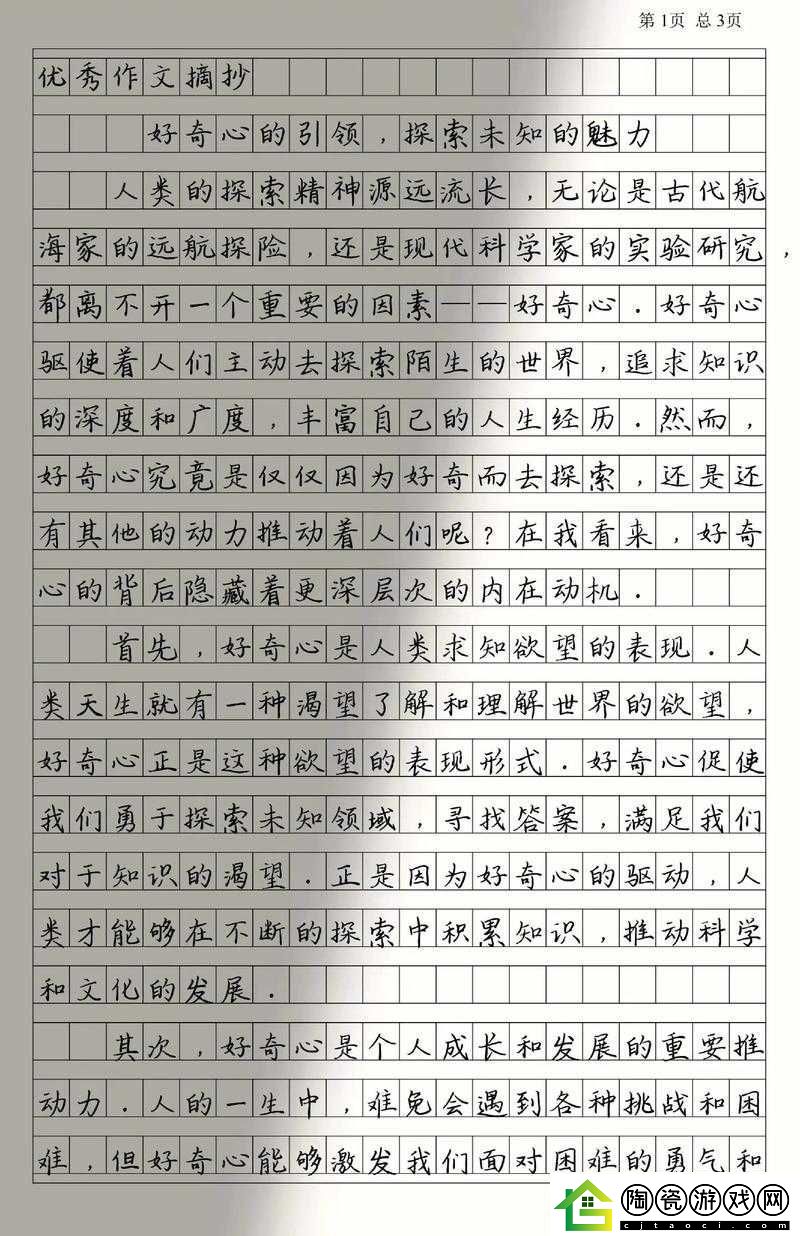 第1页 总3页
优秀作文摘抄
好奇心的引领，探索未知的魅力
人类的探索精神源远流长，无论是古代航
海家的远航探险，还是现代科学家的实验研究，
都离不开一个重要的因素——好奇心．好奇心
驱使着人们主动去探索陌生的世界，追求知识
的深度和广度，丰富自己的人生经历．然而，
好奇心究竟是仅仅因为好奇而去探索，还是还
有其他的动力推动着人们呢？在我看来，好奇
心的背后隐藏着更深层次的内在动机．
首先，好奇心是人类求知欲望的表现．人
类天生就有一种渴望了解和理解世界的欲望，
好奇心正是这种欲望的表现形式．好奇心促使
我们勇于探索未知领域，寻找答案，满足我们
对于知识的渴望．正是因为好奇心的驱动，人
类才能够在不断的探索中积累知识，推动科学
和文化的发展．
其次，好奇心是个人成长和发展的重要推
动力．人的一生中，难免会遇到各种挑战和困
难，但好奇心能够激发我们面对困难的勇气和
陶瓷游戏网
cjtaoci.com